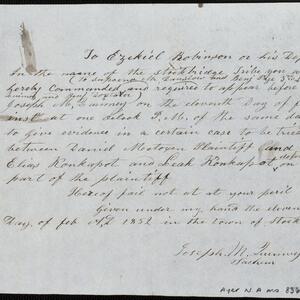 To Ezekiel Robinson or his Dep
In the name of the Stockbridge Tribe you are
(to suppoena Mr and
hereby Commanded and required to appear before
Joseph M. Quinney on the eleventh Day of
inst at one Oclock P.M. of the same da
to give evidence in a certain case to be tried
between Daniel Metoxen Plaintiff (and
Elias Konkapot and Leah Konkapot on
part of the plaintiff
Hereof fail not at your peril
Given under my hand the eleven
Day of feb AD 1852 in the town of Stock
Joseph M. Quinney
Sachem
Ayer N.A. ms